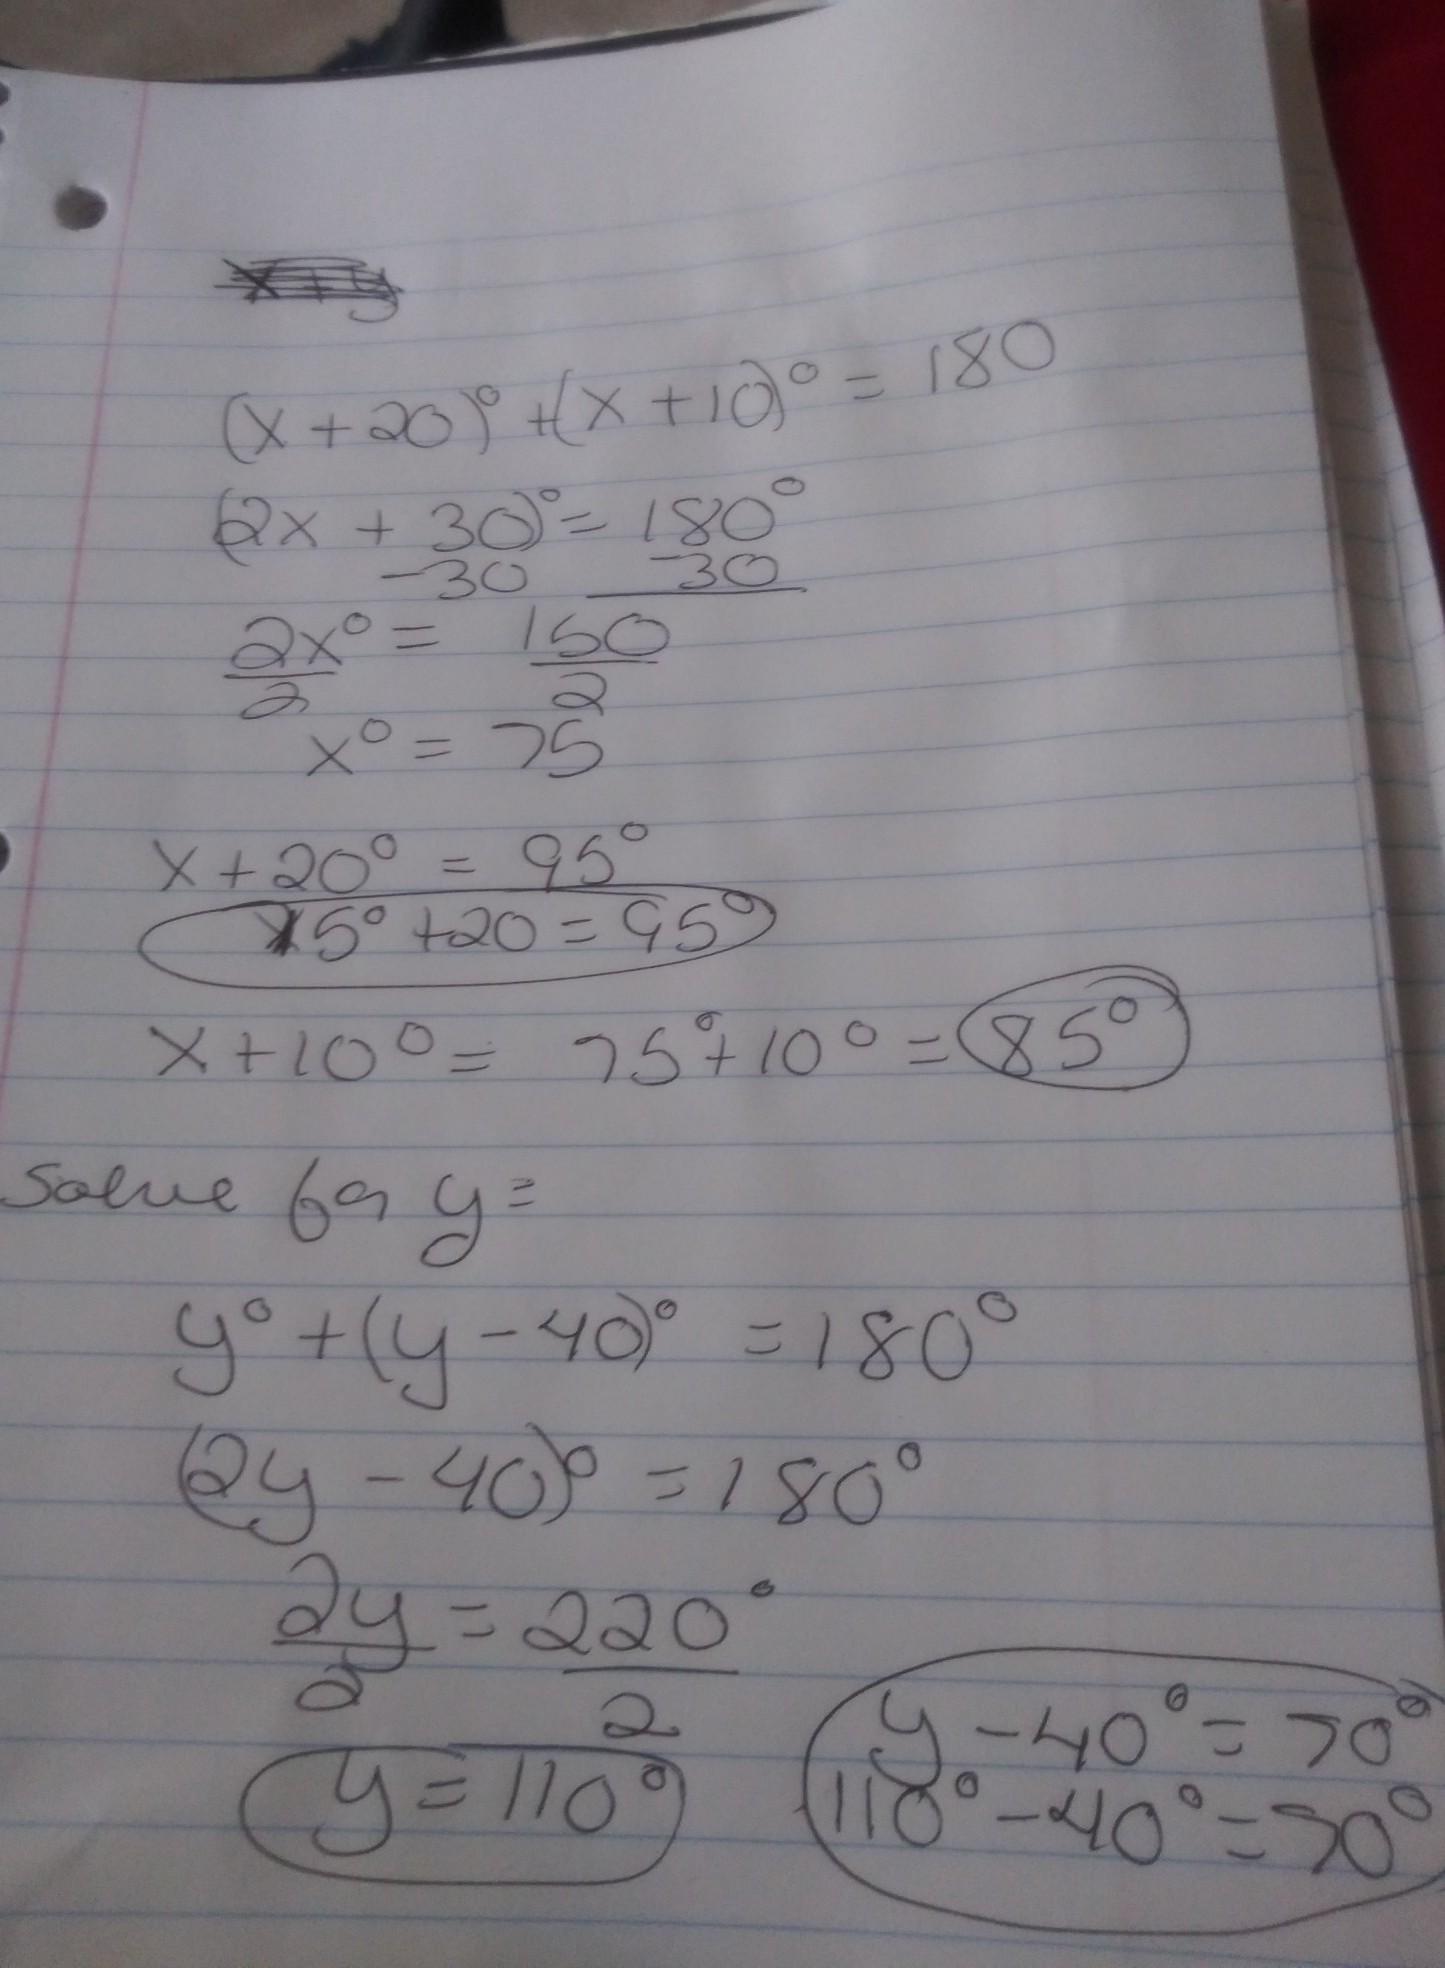 (x + 20)° + (x + 10)° = 180
(2x + 30)° = 180°
-30 -30
2x° = 150
2 2
x° = 75
x + 20° = 95°
75° + 20 = 95°
x + 10° = 75° + 10° = 85°
Solve for y =
y° + (y - 40)° = 180°
(2y - 40)° = 180°
2y = 220°
2 2
y = 110°
y - 40° = 70°
110° - 40° = 70°